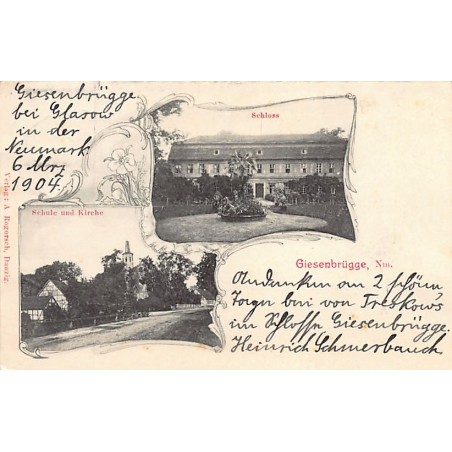 Giesenbrügge
bei Glasow
in der
Neumark
6 Mrz
1904.
Schloss
Schule und Kirche
Verlag: A Rogorsch, Danzig.
Giesenbrügge, Nm.
Andenken an 2 schöne
Tage bei von Treskow's
im Schlosse Giesenbrügge.
Heinrich Schmerbauch